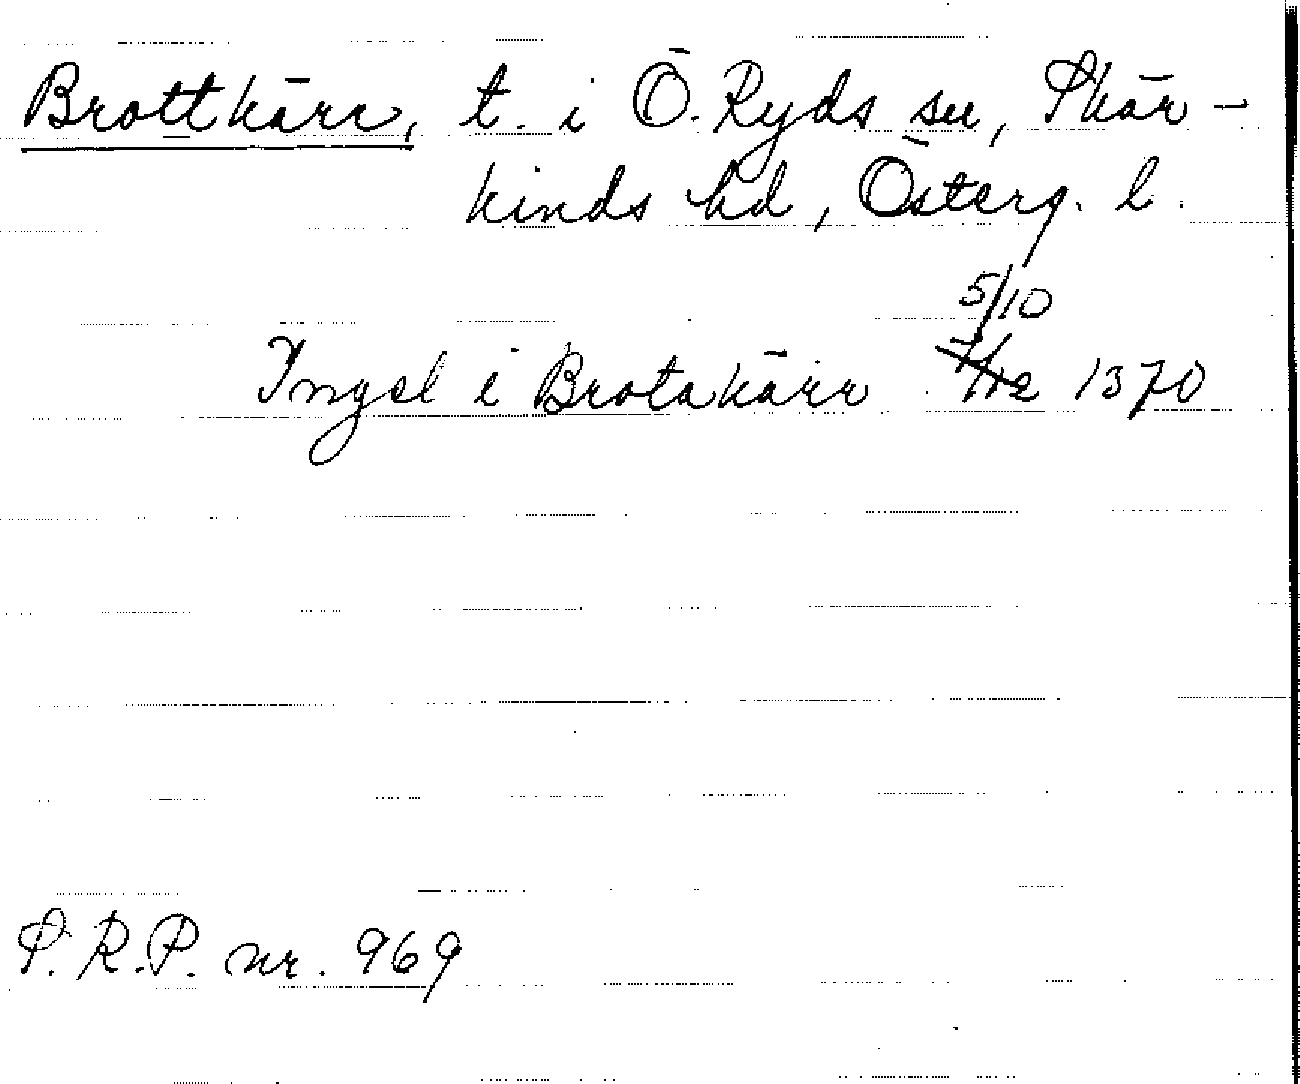 Brottkärr, t. i Ö. Ryds sn, Skär-
kinds hd, Österg. l.
5/10
Ingel i Brotakärr 1370
S.R.P. nr. 969